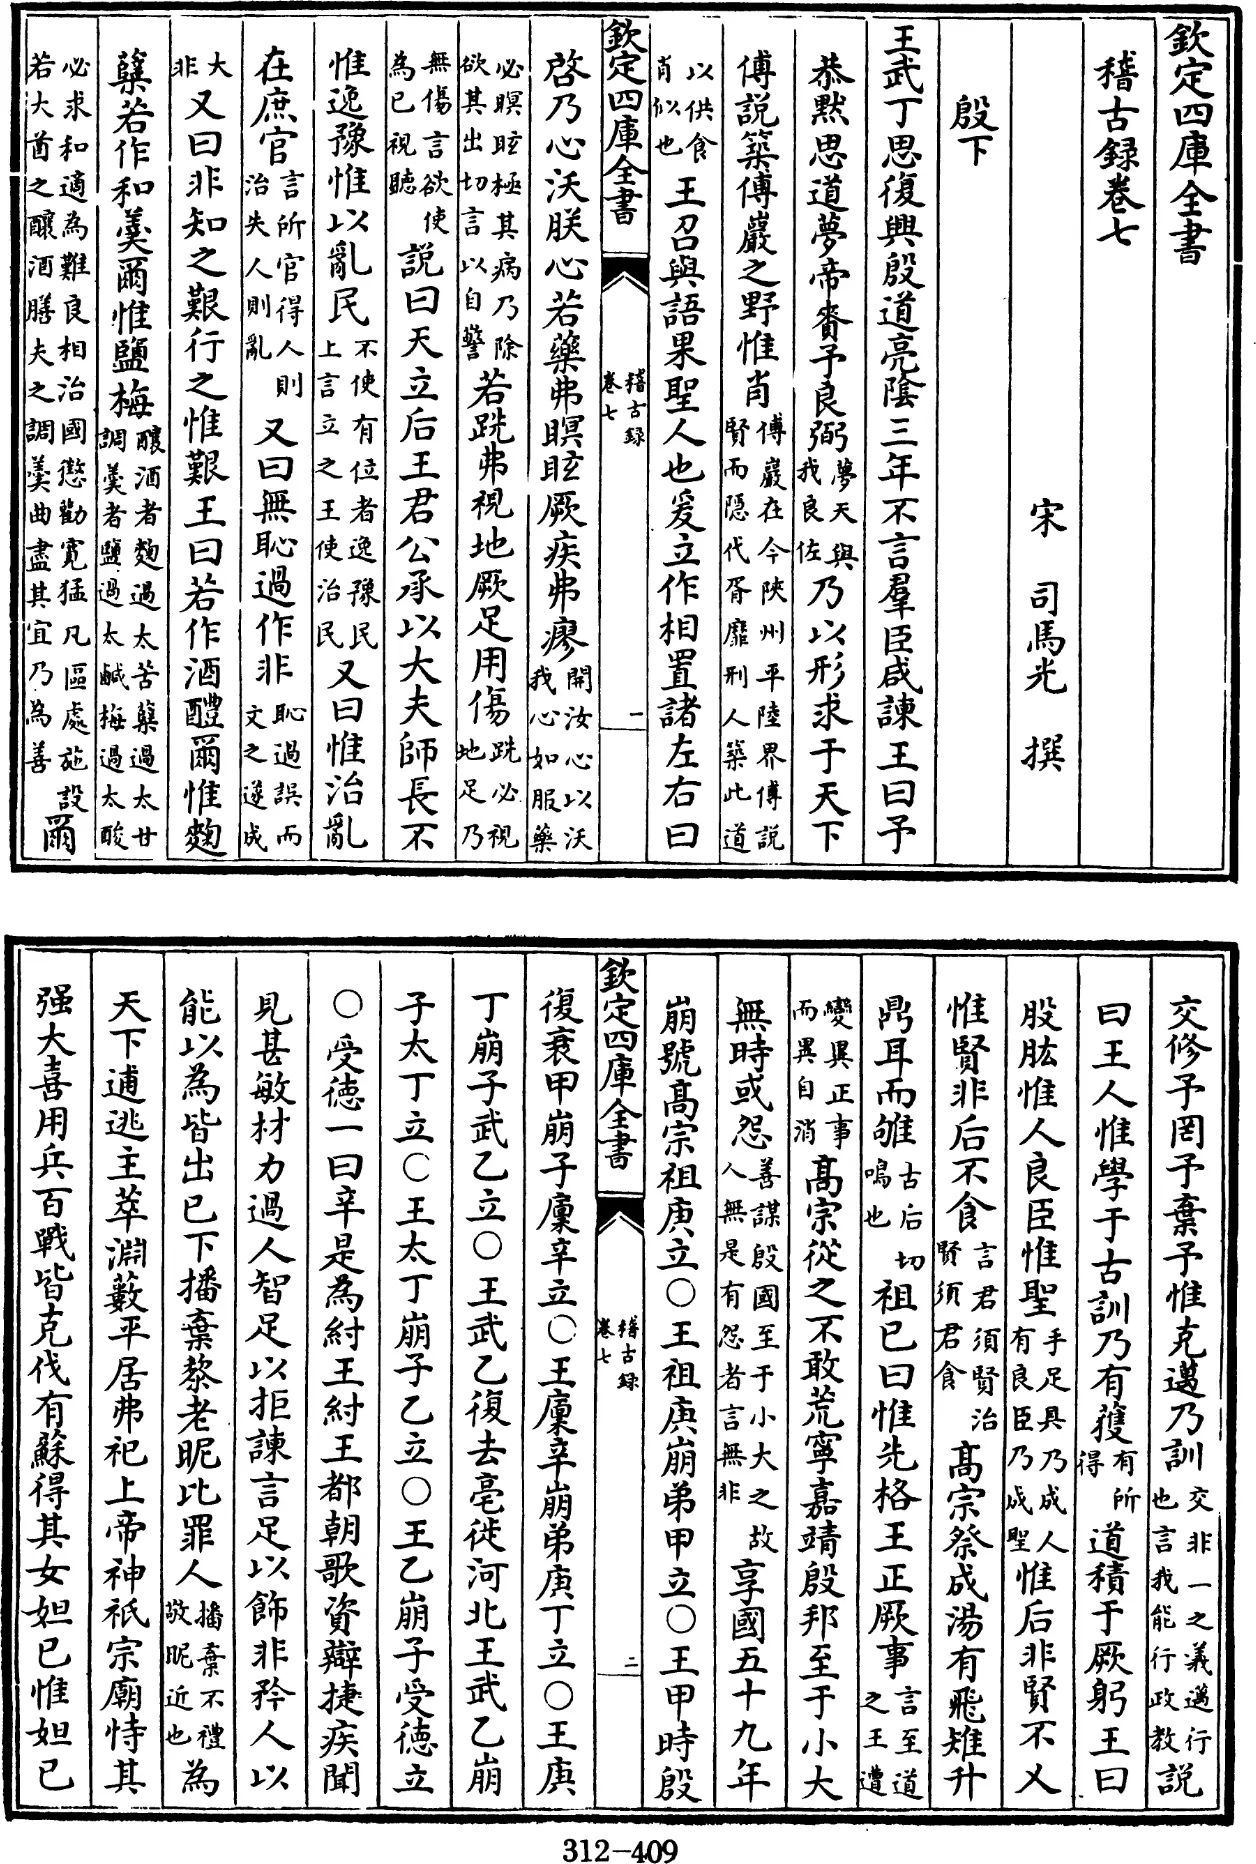 欽定四庫全書
稽古錄卷七
宋 司馬光 撰
殷下
王武丁思復興殷道亮陰三年不言羣臣咸諫王曰予
恭默思道夢帝賚予良弼夢天與我良佐乃以形求于天下
傅説築傅巖之野惟肖傅巖在今陜州平陸界傅説賢而隱代胥靡刑人築此道
以供食肖似也王召與語果聖人也爰立作相置諸左右曰
欽定四庫全書 稽古録卷七 一
啓乃心沃朕心若藥弗瞑眩厥疾弗瘳開汝心以沃我心如服藥
必瞑眩極其病乃除欲其出切言以自警若跣弗視地厥足用傷跣必視地足乃
無傷言欲使為已視聽説曰天立后王君公承以大夫師長不
惟逸豫惟以亂民不使有位者逸豫民上言立之王使治民又曰惟治亂
在庶官言所官得人則治失人則亂又曰無恥過作非恥過誤而文之遂成
大非又曰非知之艱行之惟艱王曰若作酒醴爾惟麴
糵若作和羹爾惟鹽梅釀酒者麴過太苦糵過太甘調羹者鹽過太鹹梅過太酸
必求和適為難良相治國懲勸寛猛凡區處施設若大酋之釀酒膳夫之調羹曲盡其宜乃為善爾
交修予罔予棄予惟克邁乃訓交非一之義邁行也言我能行政教説
曰王人惟學于古訓乃有獲有所得道積于厥躬王曰
股肱惟人良臣惟聖手足具乃成人有良臣乃成聖惟后非賢不乂
惟賢非后不食言君須賢治賢須君食高宗祭成湯有飛雉升
鼎耳而雊古后切鳴也祖已曰惟先格王正厥事言至道之王遭
變異正事而異自消高宗從之不敢荒寧嘉靖殷邦至于小大
無時或怨善謀殷國至于小大之故人無是有怨者言無非享國五十九年
崩號高宗祖庚立○王祖庚崩弟甲立○王甲時殷
欽定四庫全書 稽古録卷七 二
復衰甲崩子廩辛立○王廩辛崩弟庚丁立○王庚
丁崩子武乙立○王武乙復去亳徙河北王武乙崩
子太丁立○王太丁崩子乙立○王乙崩子受德立
○受德一曰辛是為紂王紂王都朝歌資辯捷疾聞
見甚敏材力過人智足以拒諫言足以飾非矜人以
能以為皆出已下播棄黎老昵比罪人播棄不禮敬昵近也為
天下逋逃主萃淵藪平居弗祀上帝神祇宗廟恃其
强大喜用兵百戰皆克伐有蘇得其女妲已惟妲已
312-409